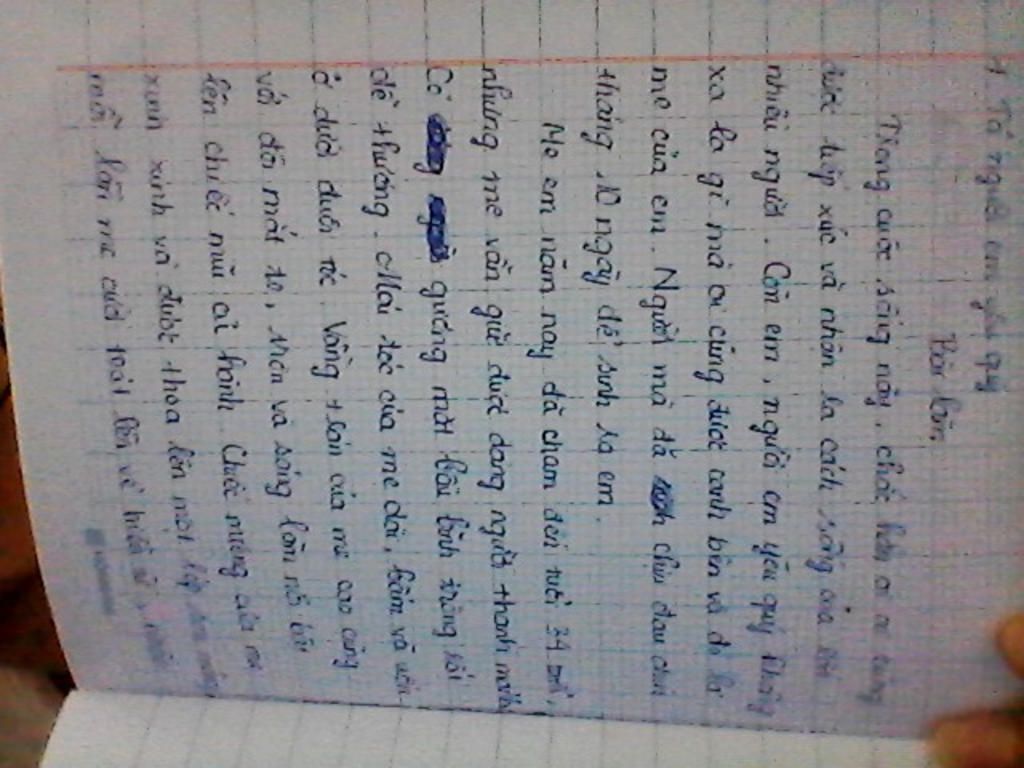 1. Tả người em yêu quý
Bài làm
Trong cuộc sống này, chắc hẳn ai ai cũng
được tiếp xúc và nhận ra cách sống của
nhiều người. Còn em, người em yêu quý không
xa lạ gì mà ai cũng được cạnh bên và đó là
mẹ của em. Người mà đã chịu đau chín
tháng 10 ngày để sinh ra em.
Mẹ em năm nay đã chạm đến tuổi 34
nhưng mẹ vẫn giữ được dáng người thanh mảnh
Có gương mặt bầu bĩnh trông rất
dễ thương. Mái tóc của mẹ dài, đậm và uốn
ở dưới đuôi tóc. Vầng trán của mẹ cao cùng
với đôi mắt to, tròn và sáng làm nổi bật
lên chiếc mũi cả hình. Chiếc miệng của mẹ
xinh xinh và được thoa lên một lớp son
mỗi lần mẹ cười toát lên vẻ hiền